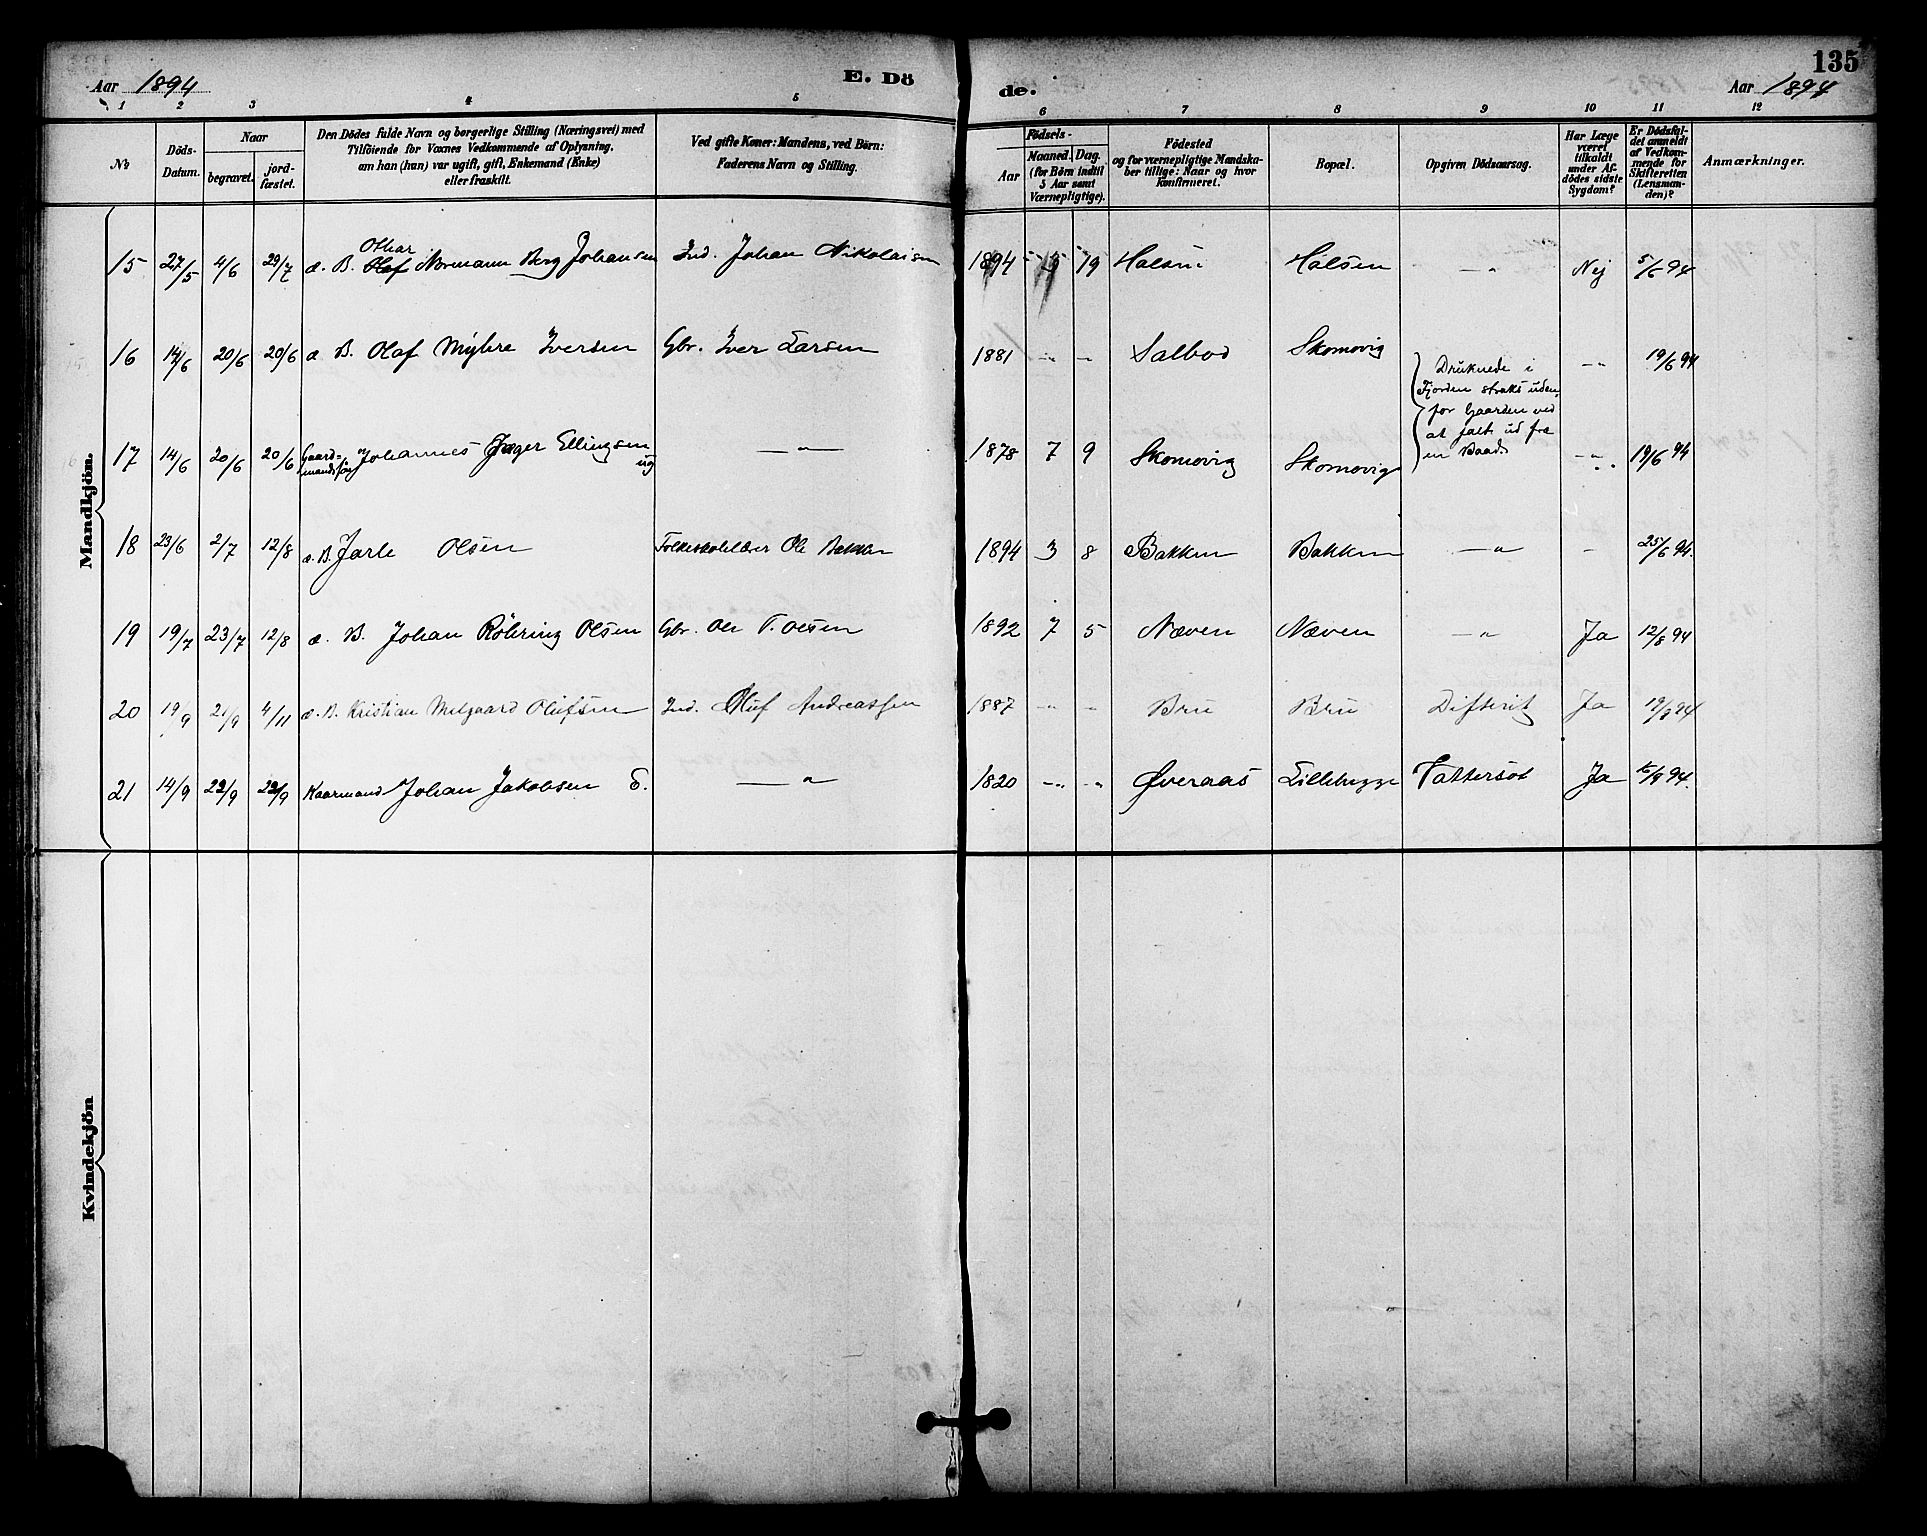 135
Aar 1894
E. Dö
de.
Aar 1894
1 2 3 4 5 6 7 8 9 10 11 12
No
Döds-Datum.
Naar
begravet.
jord-fæstet.
Den Dödes fulde Navn og borgerlige Stilling (Næringsvei) med
Tilföiende for Voxnes Vedkommende af Oplysning,
om han (hun) var ugift, gift, Enkemand (Enke)
eller fraskilt.
Ved gifte Koner: Mandens, ved Börn:
Faderens Navn og Stilling.
Födsels-
Aar
Maaned. Dag.
(for Börn indtil
5 Aar samt
Værnepligtige).
Födested
og for værnepligtige Mandska-
ber tillige: Naar og hvor
Konfirmeret.
Bopæl.
Opgiven Dödsaarsag.
Har Læge
været
tilkaldt
under Af-
dödes sidste
Sygdom?
Er Dödsfal-
det anmeldt
af Vedkom-
mende for
Skifteretten
(Lensman-
den)?
Anmærkninger.
Mandkjön.
15 27/5 4/6 29/7 æ. B. Olaf Othar Normann Berg Johansen Ind. Johan Nikolaisen 1894 5 19 Halsen Halsen -"- Nej 5/6 94
16 14/6 20/6 20/6 æ. B. Olaf Myhre Iversen Gbr. Iver Larsen 1881 -"- - Salbod Skomovig -"- 19/6 94
Druknede i
Fjorden straks uden-
for Gaarden ved
at falt ud fra
en Baad.
17 14/6 20/6 20/6 Gaard-mandssøn Johannes Jæger Ellingsen ug -"- 1878 7 9 Skomovig Skomovig -"- 19/6 94
18 23/6 2/7 12/8 æ. B. Jarle Olsen Folkeskolelærer Ole Bakken 1894 3 8 Bakken Bakken -"- - 25/6 94.
19 19/7 23/7 12/8 æ. B. Johan Röhring Olsen Gbr. Ole T. Olsen 1892 7 5 Næven Næven -"- Ja 12/8 94
20 19/9 21/9 4/11 æ. B. Kristian Melgaard Olufsen Ind. Oluf Andreassen 1887 -"- " Bru Bru Difterit Ja 19/9 94
21 14/9 22/9 22/9 Kaarmand Johan Jakobsen E. -"- 1820 -"- -"- Øveraas Lillebugge Tattersot Ja 15/9 94.
Kvindekjön